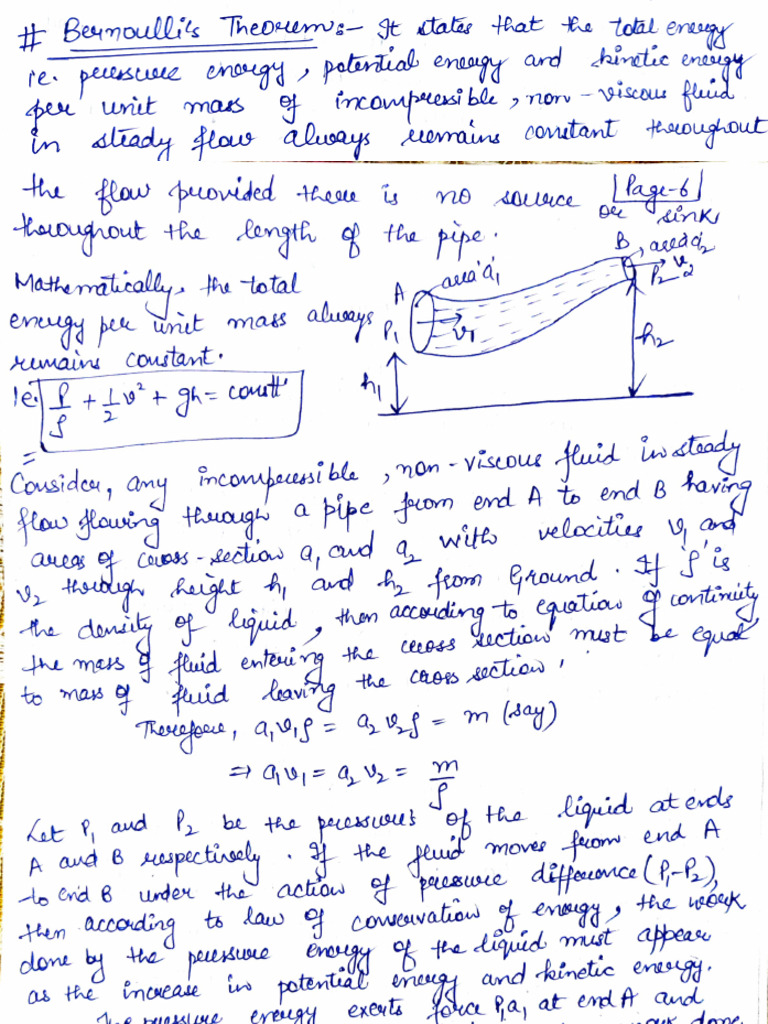 # Bernoulli's Theorem:- It states that the total energy
ie. pressure energy, potential energy and kinetic energy
per unit mass of incompressible, non-viscous fluid
in steady flow always remains constant throughout
Page-6
the flow provided there is no source or sink
throughout the length of the pipe.
Mathematically, the total
energy per unit mass always
remains constant.
ie. P/ρ + 1/2 v² + gh = constt
A area 'a₁
P₁
v₁
h₁
B, area a'₂
P₂ v₂
h₂
Consider, any incompressible, non-viscous fluid in steady
flow flowing through a pipe from end A to end B having
areas of cross-section a₁ and a₂ with velocities v₁ and
v₂ through height h₁ and h₂ from Ground. If 'ρ' is
the density of liquid, then according to equation of continuity
the mass of fluid entering the cross section must be equal
to mass of fluid leaving the cross section,
Therefore, a₁v₁ρ = a₂v₂ρ = m (say)
⇒ a₁v₁ = a₂v₂ = m/ρ
Let P₁ and P₂ be the pressures of the liquid at ends
A and B respectively. If the fluid moves from end A
to end B under the action of pressure difference (P₁-P₂),
then according to law of conservation of energy, the work
done by the pressure energy of the liquid must appear
as the increase in potential energy and kinetic energy.
The pressure energy exerts force P₁a₁ at end A and